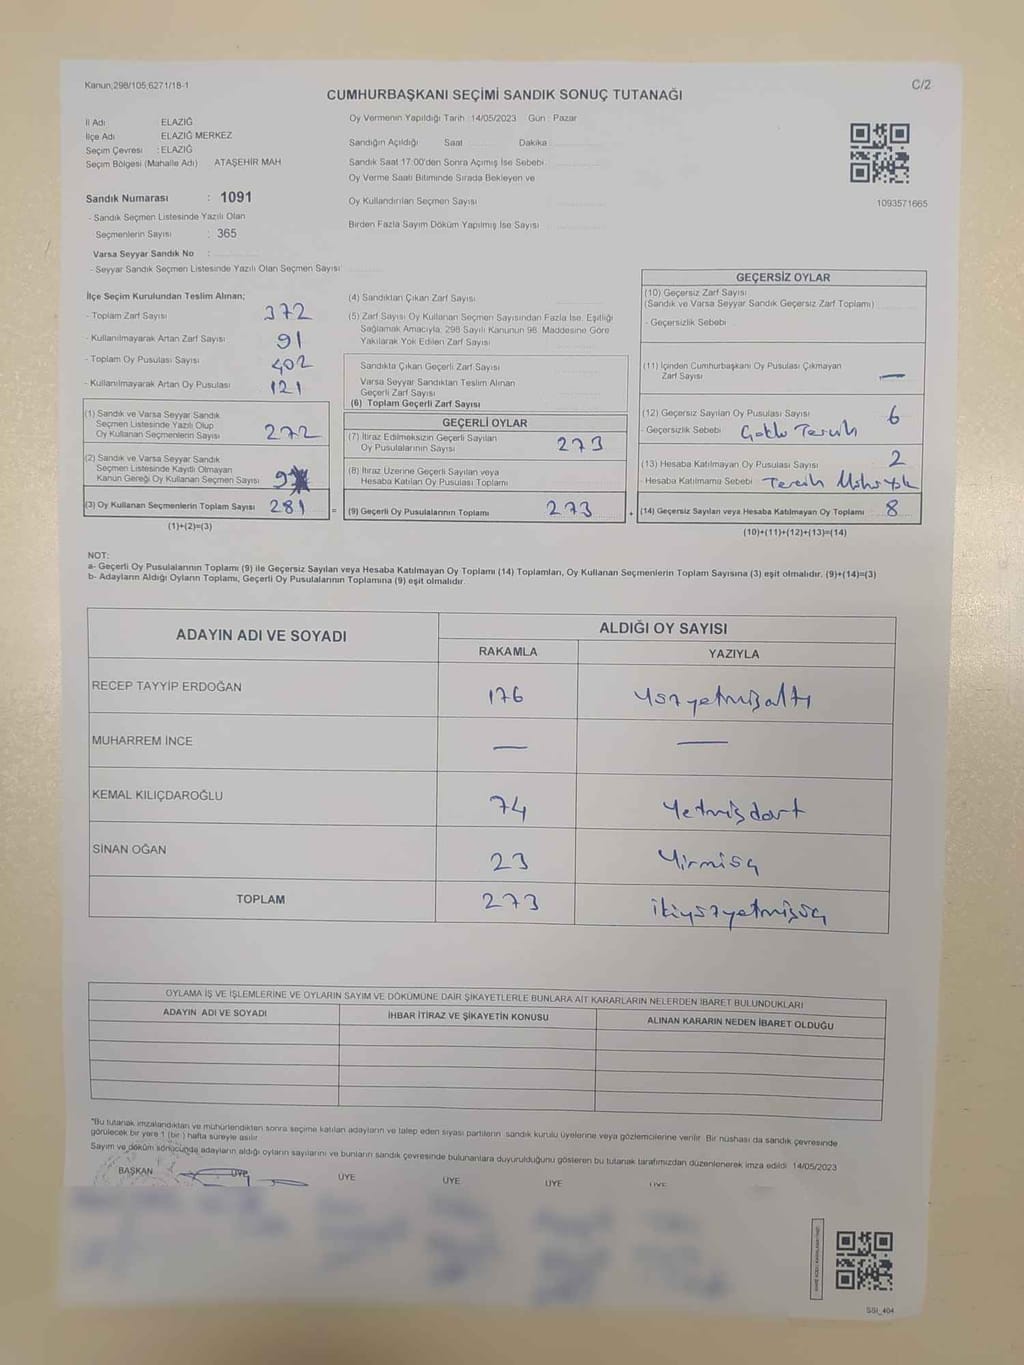 Kanun;298/105,6271/18-1
C/2
CUMHURBAŞKANI SEÇİMİ SANDIK SONUÇ TUTANAĞI
İl Adı : ELAZIĞ
İlçe Adı : ELAZIĞ MERKEZ
Seçim Çevresi : ELAZIĞ
Seçim Bölgesi (Mahalle Adı) ATAŞEHİR MAH
Sandık Numarası : 1091
- Sandık Seçmen Listesinde Yazılı Olan
Seçmenlerin Sayısı : 365
Varsa Seyyar Sandık No :
- Seyyar Sandık Seçmen Listesinde Yazılı Olan Seçmen Sayısı
Oy Vermenin Yapıldığı Tarih :14/05/2023 Gün : Pazar
Sandığın Açıldığı Saat Dakika
Sandık Saat 17:00'den Sonra Açımış İse Sebebi
Oy Verme Saati Bitiminde Sırada Bekleyen ve
Oy Kullandırılan Seçmen Sayısı
Birden Fazla Sayım Döküm Yapılmış İse Sayısı
1093571665
İlçe Seçim Kurulundan Teslim Alınan;
- Toplam Zarf Sayısı 372
- Kullanılmayarak Artan Zarf Sayısı 91
- Toplam Oy Pusulası Sayısı 402
- Kullanılmayarak Artan Oy Pusulası 121
(1) Sandık ve Varsa Seyyar Sandık
Seçmen Listesinde Yazılı Olup
Oy Kullanan Seçmenlerin Sayısı 272
(2) Sandık ve Varsa Seyyar Sandık
Seçmen Listesinde Kayıtlı Olmayan
Kanun Gereği Oy Kullanan Seçmen Sayısı 9
(3) Oy Kullanan Seçmenlerin Toplam Sayısı 281
(1)+(2)=(3)
=
(4) Sandıktan Çıkan Zarf Sayısı
(5) Zarf Sayısı Oy Kullanan Seçmen Sayısından Fazla İse, Eşitliği
Sağlamak Amacıyla, 298 Sayılı Kanunun 98. Maddesine Göre
Yakılarak Yok Edilen Zarf Sayısı
Sandıkta Çıkan Geçerli Zarf Sayısı
Varsa Seyyar Sandıktan Teslim Alınan
Geçerli Zarf Sayısı
(6) Toplam Geçerli Zarf Sayısı
GEÇERLİ OYLAR
(7) İtiraz Edilmeksizin Geçerli Sayılan
Oy Pusulalarının Sayısı 273
(8) İtiraz Üzerine Geçerli Sayılan veya
Hesaba Katılan Oy Pusulası Toplamı
(9) Geçerli Oy Pusulalarının Toplamı 273
+
GEÇERSİZ OYLAR
(10) Geçersiz Zarf Sayısı
(Sandık ve Varsa Seyyar Sandık Geçersiz Zarf Toplamı)
- Geçersizlik Sebebi
(11) İçinden Cumhurbaşkanı Oy Pusulası Çıkmayan
Zarf Sayısı —
(12) Geçersiz Sayılan Oy Pusulası Sayısı 6
- Geçersizlik Sebebi Çoklu Tercih
(13) Hesaba Katılmayan Oy Pusulası Sayısı 2
- Hesaba Katılmama Sebebi Tercih Mührü Yok
(14) Geçersiz Sayılan veya Hesaba Katılmayan Oy Toplamı 8
(10)+(11)+(12)+(13)=(14)
NOT:
a- Geçerli Oy Pusulalarının Toplamı (9) ile Geçersiz Sayılan veya Hesaba Katılmayan Oy Toplamı (14) Toplamları, Oy Kullanan Seçmenlerin Toplam Sayısına (3) eşit olmalıdır. (9)+(14)=(3)
b- Adayların Aldığı Oyların Toplamı, Geçerli Oy Pusulalarının Toplamına (9) eşit olmalıdır.
ADAYIN ADI VE SOYADI
ALDIĞI OY SAYISI
RAKAMLA YAZIYLA
RECEP TAYYİP ERDOĞAN 176 Yüzyetmişaltı
MUHARREM İNCE — —
KEMAL KILIÇDAROĞLU 74 Yetmişdört
SİNAN OĞAN 23 Yirmiüç
TOPLAM 273 ikiyüzyetmişüç
OYLAMA İŞ VE İŞLEMLERİNE VE OYLARIN SAYIM VE DÖKÜMÜNE DAİR ŞİKAYETLERLE BUNLARA AİT KARARLARIN NELERDEN İBARET BULUNDUKLARI
ADAYIN ADI VE SOYADI İHBAR İTİRAZ VE ŞİKAYETİN KONUSU ALINAN KARARIN NEDEN İBARET OLDUĞU
*Bu tutanak imzalandıktan ve mühürlendikten sonra seçime katılan adayların ve talep eden siyasi partilerin sandık kurulu üyelerine veya gözlemcilerine verilir. Bir nüshası da sandık çevresinde
görülecek bir yere 1 (bir ) hafta süreyle asılır
Sayım ve döküm sonucunda adayların aldığı oyların sayılarını ve bunların sandık çevresinde bulunanlara duyurulduğunu gösteren bu tutanak tarafımızdan düzenlenerek imza edildi 14/05/2023
BAŞKAN ÜYE ÜYE ÜYE ÜYE ÜYE
SSI_404